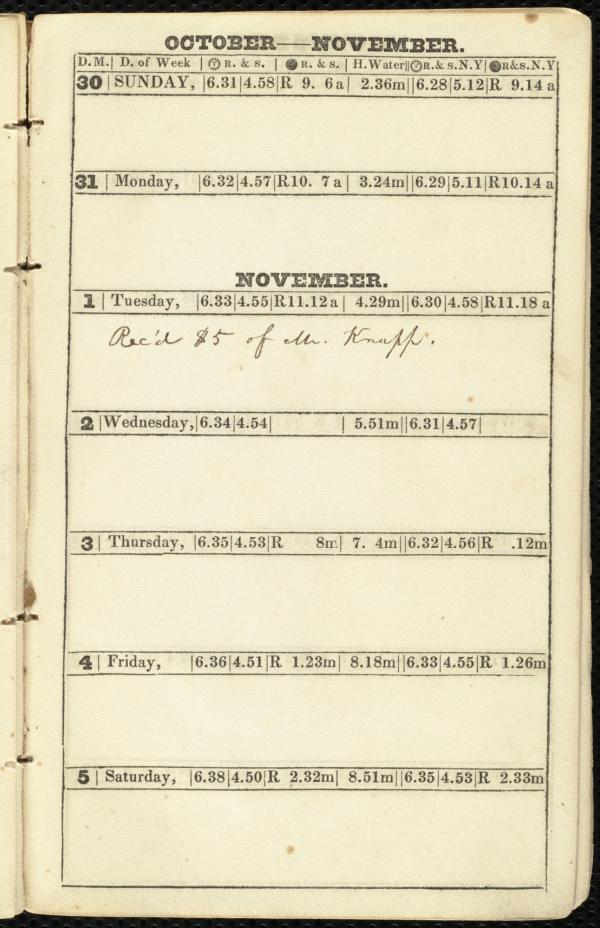 OCTOBER—NOVEMBER.
D.M.| D. of Week | R. & s. | R. & s. | H.Water||R.& s.N.Y|R&s.N.Y
30 | SUNDAY, |6.31|4.58|R 9. 6 a| 2.36m||6.28|5.12|R 9.14 a
31 | Monday, |6.32|4.57|R10. 7 a| 3.24m||6.29|5.11|R10.14 a
NOVEMBER.
1 | Tuesday, |6.33|4.55|R11.12 a| 4.29m||6.30|4.58|R11.18 a
Rec'd $5 of Mr. Knapp.
2 |Wednesday,|6.34|4.54| | 5.51m||6.31|4.57|
3 | Thursday, |6.35|4.53|R 8m| 7. 4m||6.32|4.56|R .12m
4 | Friday, |6.36|4.51|R 1.23m| 8.18m||6.33|4.55|R 1.26m
5 | Saturday, |6.38|4.50|R 2.32m| 8.51m||6.35|4.53|R 2.33m